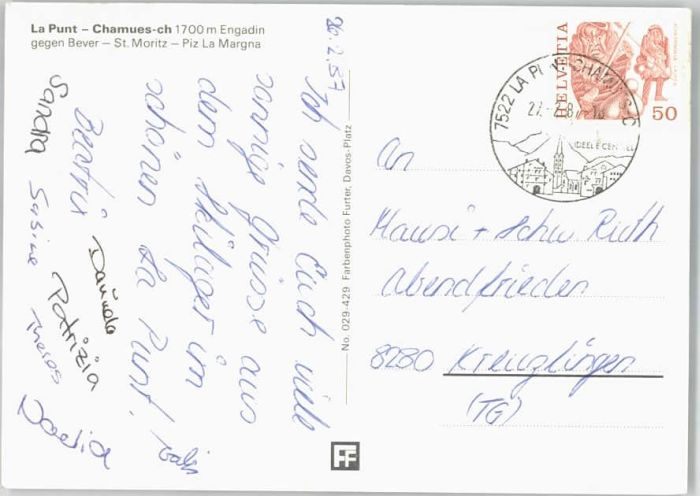 La Punt – Chamues-ch 1700 m Engadin
gegen Bever – St. Moritz – Piz La Margna
HELVETIA
50
7522 LA PUNT-CHAMUES-CH
26.2.87
Ich sende Euch viele
sonnige Grüsse aus
dem Skilager im
schönen La Punt!
Beatrix
Sandra
Daniela
Patrizia
No. 029-429 Farbenphoto Furter, Davos-Platz
FF
An
Mausi +
Abendfrieden
8280 Kreuzlingen
(TG)